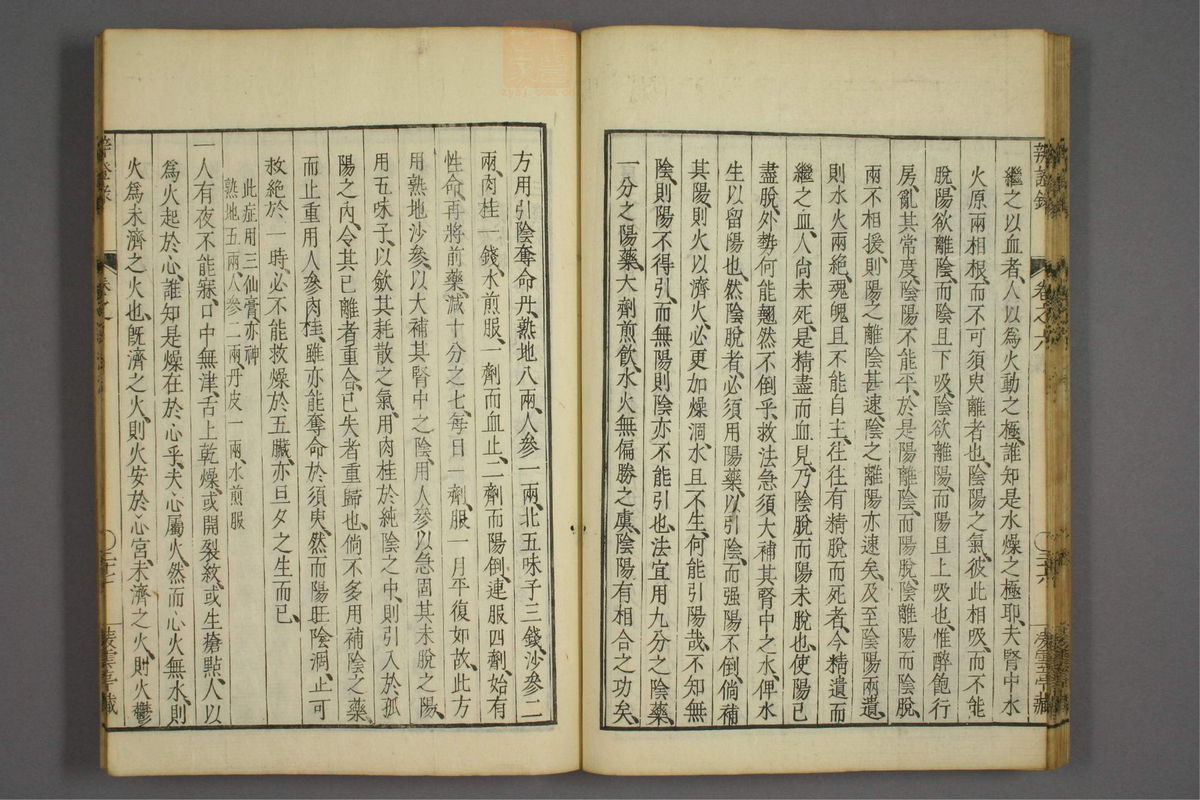 繼之以血者、人以爲火動之極、誰知是水燥之極耶、夫腎中水
火原兩相根、而不可須臾離者也、陰陽之氣、彼此相吸、而不能
脫、陽欲離陰、而陰且下吸、陰欲離陽、而陽且上吸也、惟醉飽行
房、亂其常度、陰陽不能平、於是陽離陰、而陽脫、陰離陽而陰脫、
兩不相援、則陽之離陰甚速、陰之離陽亦速矣、及至陰陽兩遺、
則水火兩絕、魂魄且不能自主、往往有精脫而死者、今精遺而
繼之血、人尙未死、是精盡而血見、乃陰脫而陽未脫也、使陽已
盡脫、外勢何能翹然不倒乎、救法急須大補其腎中之水、俾水
生以留陽也、然陰脫者、必須用陽藥、以引陰、而强陽不倒、倘補
其陽、則火以濟火、必更加燥涸、水且不生、何能引陽哉、不知無
陰、則陽不得引、而無陽則陰亦不能引也、法宜用九分之陰藥、
一分之陽藥、大劑煎飲、水火無偏勝之虞、陰陽有相合之功矣、
辨證錄 卷之六 三六
方用引陰奪命丹、熟地八兩、人參一兩、北五味子三錢、沙參二
兩、肉桂一錢、水煎服、一劑而血止、二劑而陽倒、連服四劑、始有
性命、再將前藥、減十分之七、每日一劑、服一月平復如故、此方
用熟地沙參、以大補其腎中之陰、用人參以急固其未脫之陽、
用五味子、以斂其耗散之氣、用肉桂於純陰之中、則引入於孤
陽之內、令其已離者重合、已失者重歸也、倘不多用補陰之藥、
而止重用人參肉桂、雖亦能奪命於須臾、然而陽旺陰涸、止可
救絕於一時、必不能救燥於五臟、亦旦夕之生而已、
此症用三仙膏亦神
熟地五兩、人參二兩、丹皮一兩、水煎服
一人有夜不能寐、口中無津、舌上乾燥、或開裂紋、或生瘡點、人以
爲火起於心、誰知是燥在於心乎、夫心屬火、然而心火無水、則
火爲未濟之火也、旣濟之火、則火安於心宮、未濟之火、則火鬱